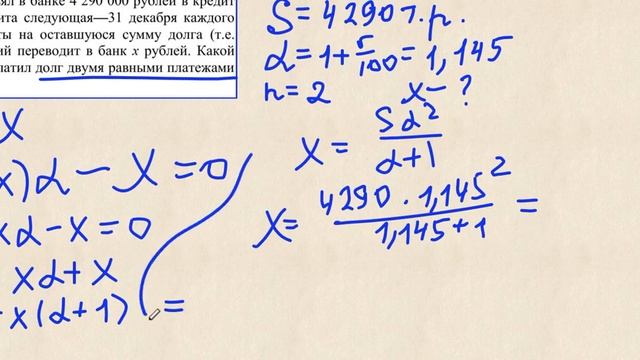 ял в банке 4 290 000 рублей в кредит
ита следующая—31 декабря каждого
ты на оставшуюся сумму долга (т.е.
ий переводит в банк x рублей. Какой
латил долг двумя равными платежами
S = 4290 т.р.
α = 1 + r/100 = 1,145
n = 2 x - ?
X
x)α - x = 0
xα - x = 0
xα + x
x(α + 1) =
x = Sα²/α+1
x = 4290 · 1,145²/1,145+1 =